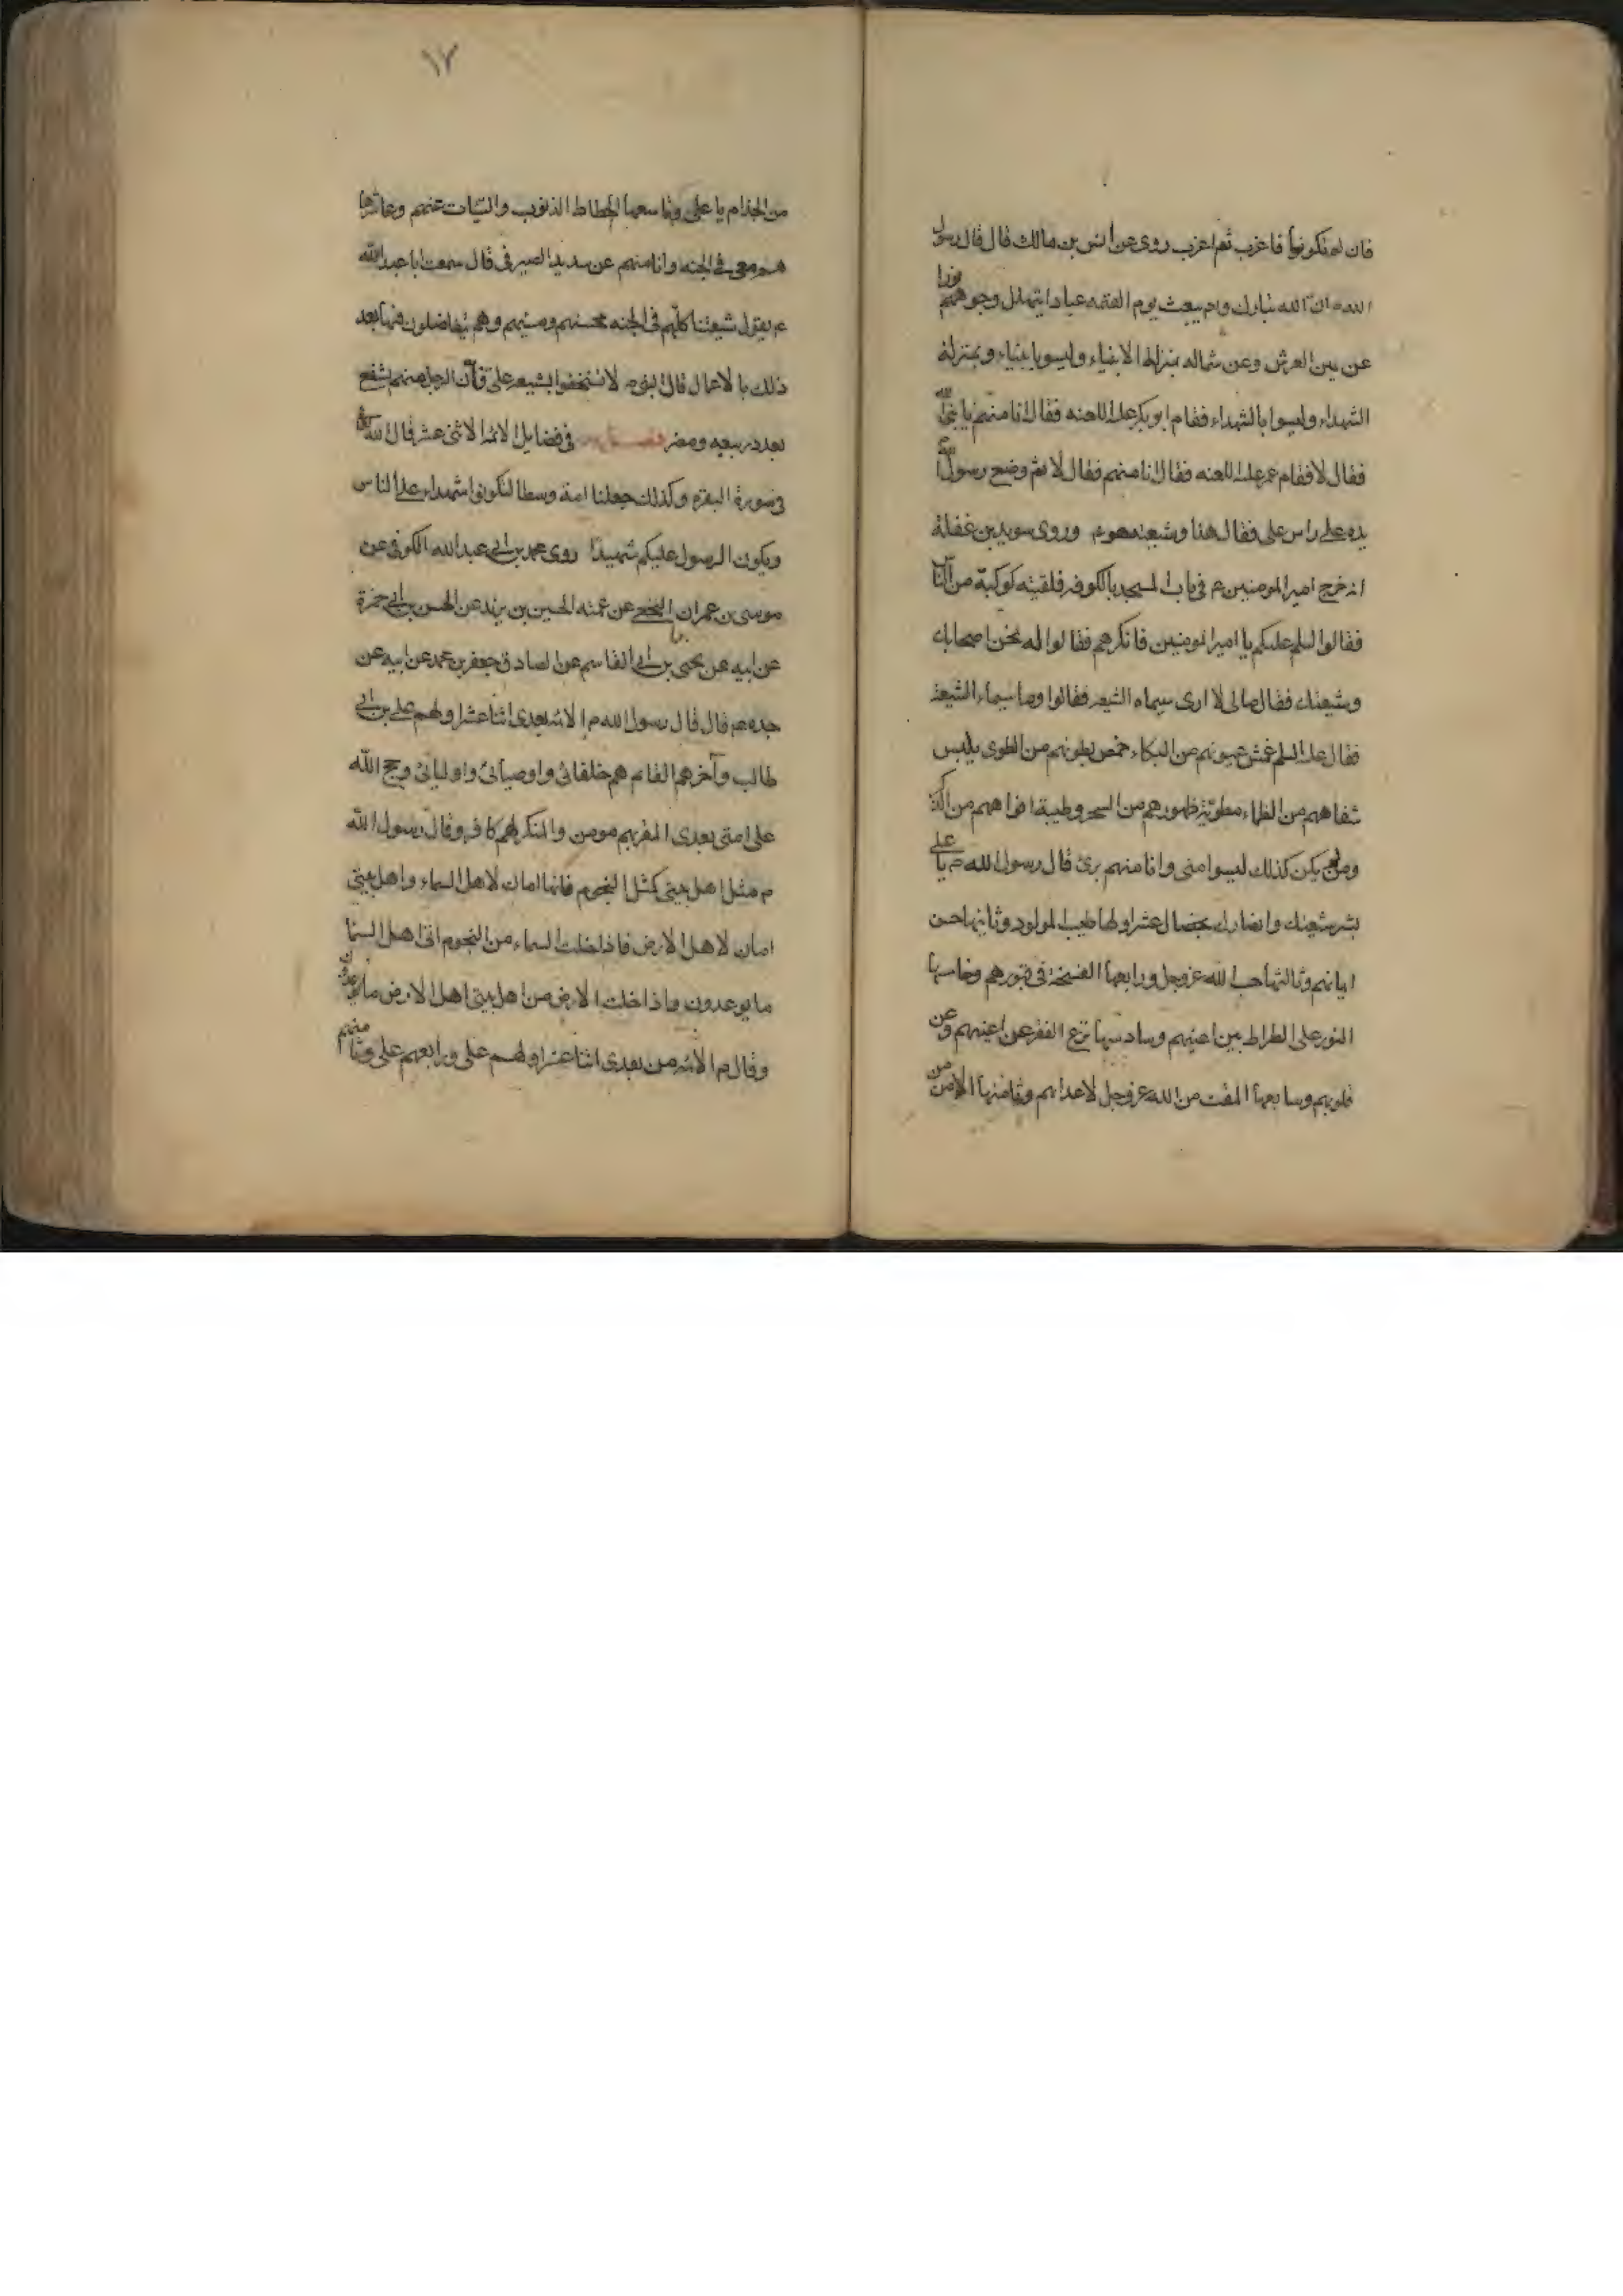 فان لم تكونوا فاعزب ثم اعزب روى عن انس بن مالك قال قال رسول
الله ص ان الله تبارك و يبعث يوم القيمه عبادا يتهلل وجوههم نورا
عن يمين العرش وعن شماله بمنزلة الانبياء وليسوا بانبياء وبمنزلة
الشهداء وليسوا بالشهداء فقام ابو بكر عليه اللعنه فقال انا منهم يا نبى الله
فقال لا فقام عمر عليه اللعنه فقال انا منهم فقال لا ثم وضع رسول الله
يده على راس على فقال هذا وشيعته وروى سويد بن غفلة
انه خرج امير المومنين ع فى باب المسجد بالكوفه فلقيته كوكبة من الناس
فقالوا السلم عليكم يا امير المومنين فانكرهم فقالوا له نحن اصحابك
وشيعتك فقال مالى لا ارى سيماء الشيعه فقالوا وما سيماء الشيعة
فقال عليه السلم عمش عيونهم من البكاء خمص بطونهم من الطوى يابس
شفاههم من الظماء مطوية ظهورهم من السجود طيبة افواههم من الذكر
ومن لم يكن كذلك ليسوا منى وانا منهم برئ قال رسول الله ص يا على
بشر شيعتك وانصارك بخصال عشر اولها طيب المولود وثانيها حسن
ايمانهم وثالثها حب الله عز وجل ورابعها الفسحة فى قبورهم وخامسها
النور على الطراط بين اعينهم وسادسها نزع الفقر عن اعينهم وعن
قلوبهم وسابعها المقت من الله عز وجل لاعدائهم وثامنها الامن من
١٧
من الجذام يا على وتاسعها انحطاط الذنوب والسيات عنهم وعاشرها
هم معى فى الجنه وانا منهم عن سدير الصيرفى قال سمعت ابا عبد الله
ع يقول شيعتنا كلهم فى الجنه محسنهم ومسيئهم وهم يتفاضلون فيها بعد
ذلك بالاعمال قال النبى ص لا تستخفوا بشيعه على فان الرجل منهم يشفع
بعدد ربيعه ومضر فصل فى فضايل الائمة الاثنى عشر قال الله تعالى
فى سورة البقره وكذلك جعلنا امة وسطا لتكونوا شهداء على الناس
ويكون الرسول عليكم شهيدا روى محمد بن ابى عبد الله الكوفى عن
موسى بن عمران النخعى عن عمه الحسين بن يزيد عن الحسن بن ابى حمزة
عن ابيه عن يحيى بن ابى القاسم عن الصادق جعفر بن محمد عن ابيه عن
جده ع قال قال رسول الله ص الائمه بعدى اثنا عشر اولهم على بن ابى
طالب وآخرهم القائم هم خلفائى واوصيائى واوليائى وحجج الله
على امتى بعدى المقر بهم مومن والمنكر لهم كافر وقال رسول الله
ص مثل اهل بيتى كمثل النجوم فانها امان لاهل السماء واهل بيتى
امان لاهل الارض فاذا خلت السماء من النجوم اتى اهل السما
ما يوعدون واذا خلت الارض من اهل بيتى اهل الارض ما يوعدون
وقال ص الائمه من بعدى اثنا عشر اولهم على ورابعهم على وثامنهم